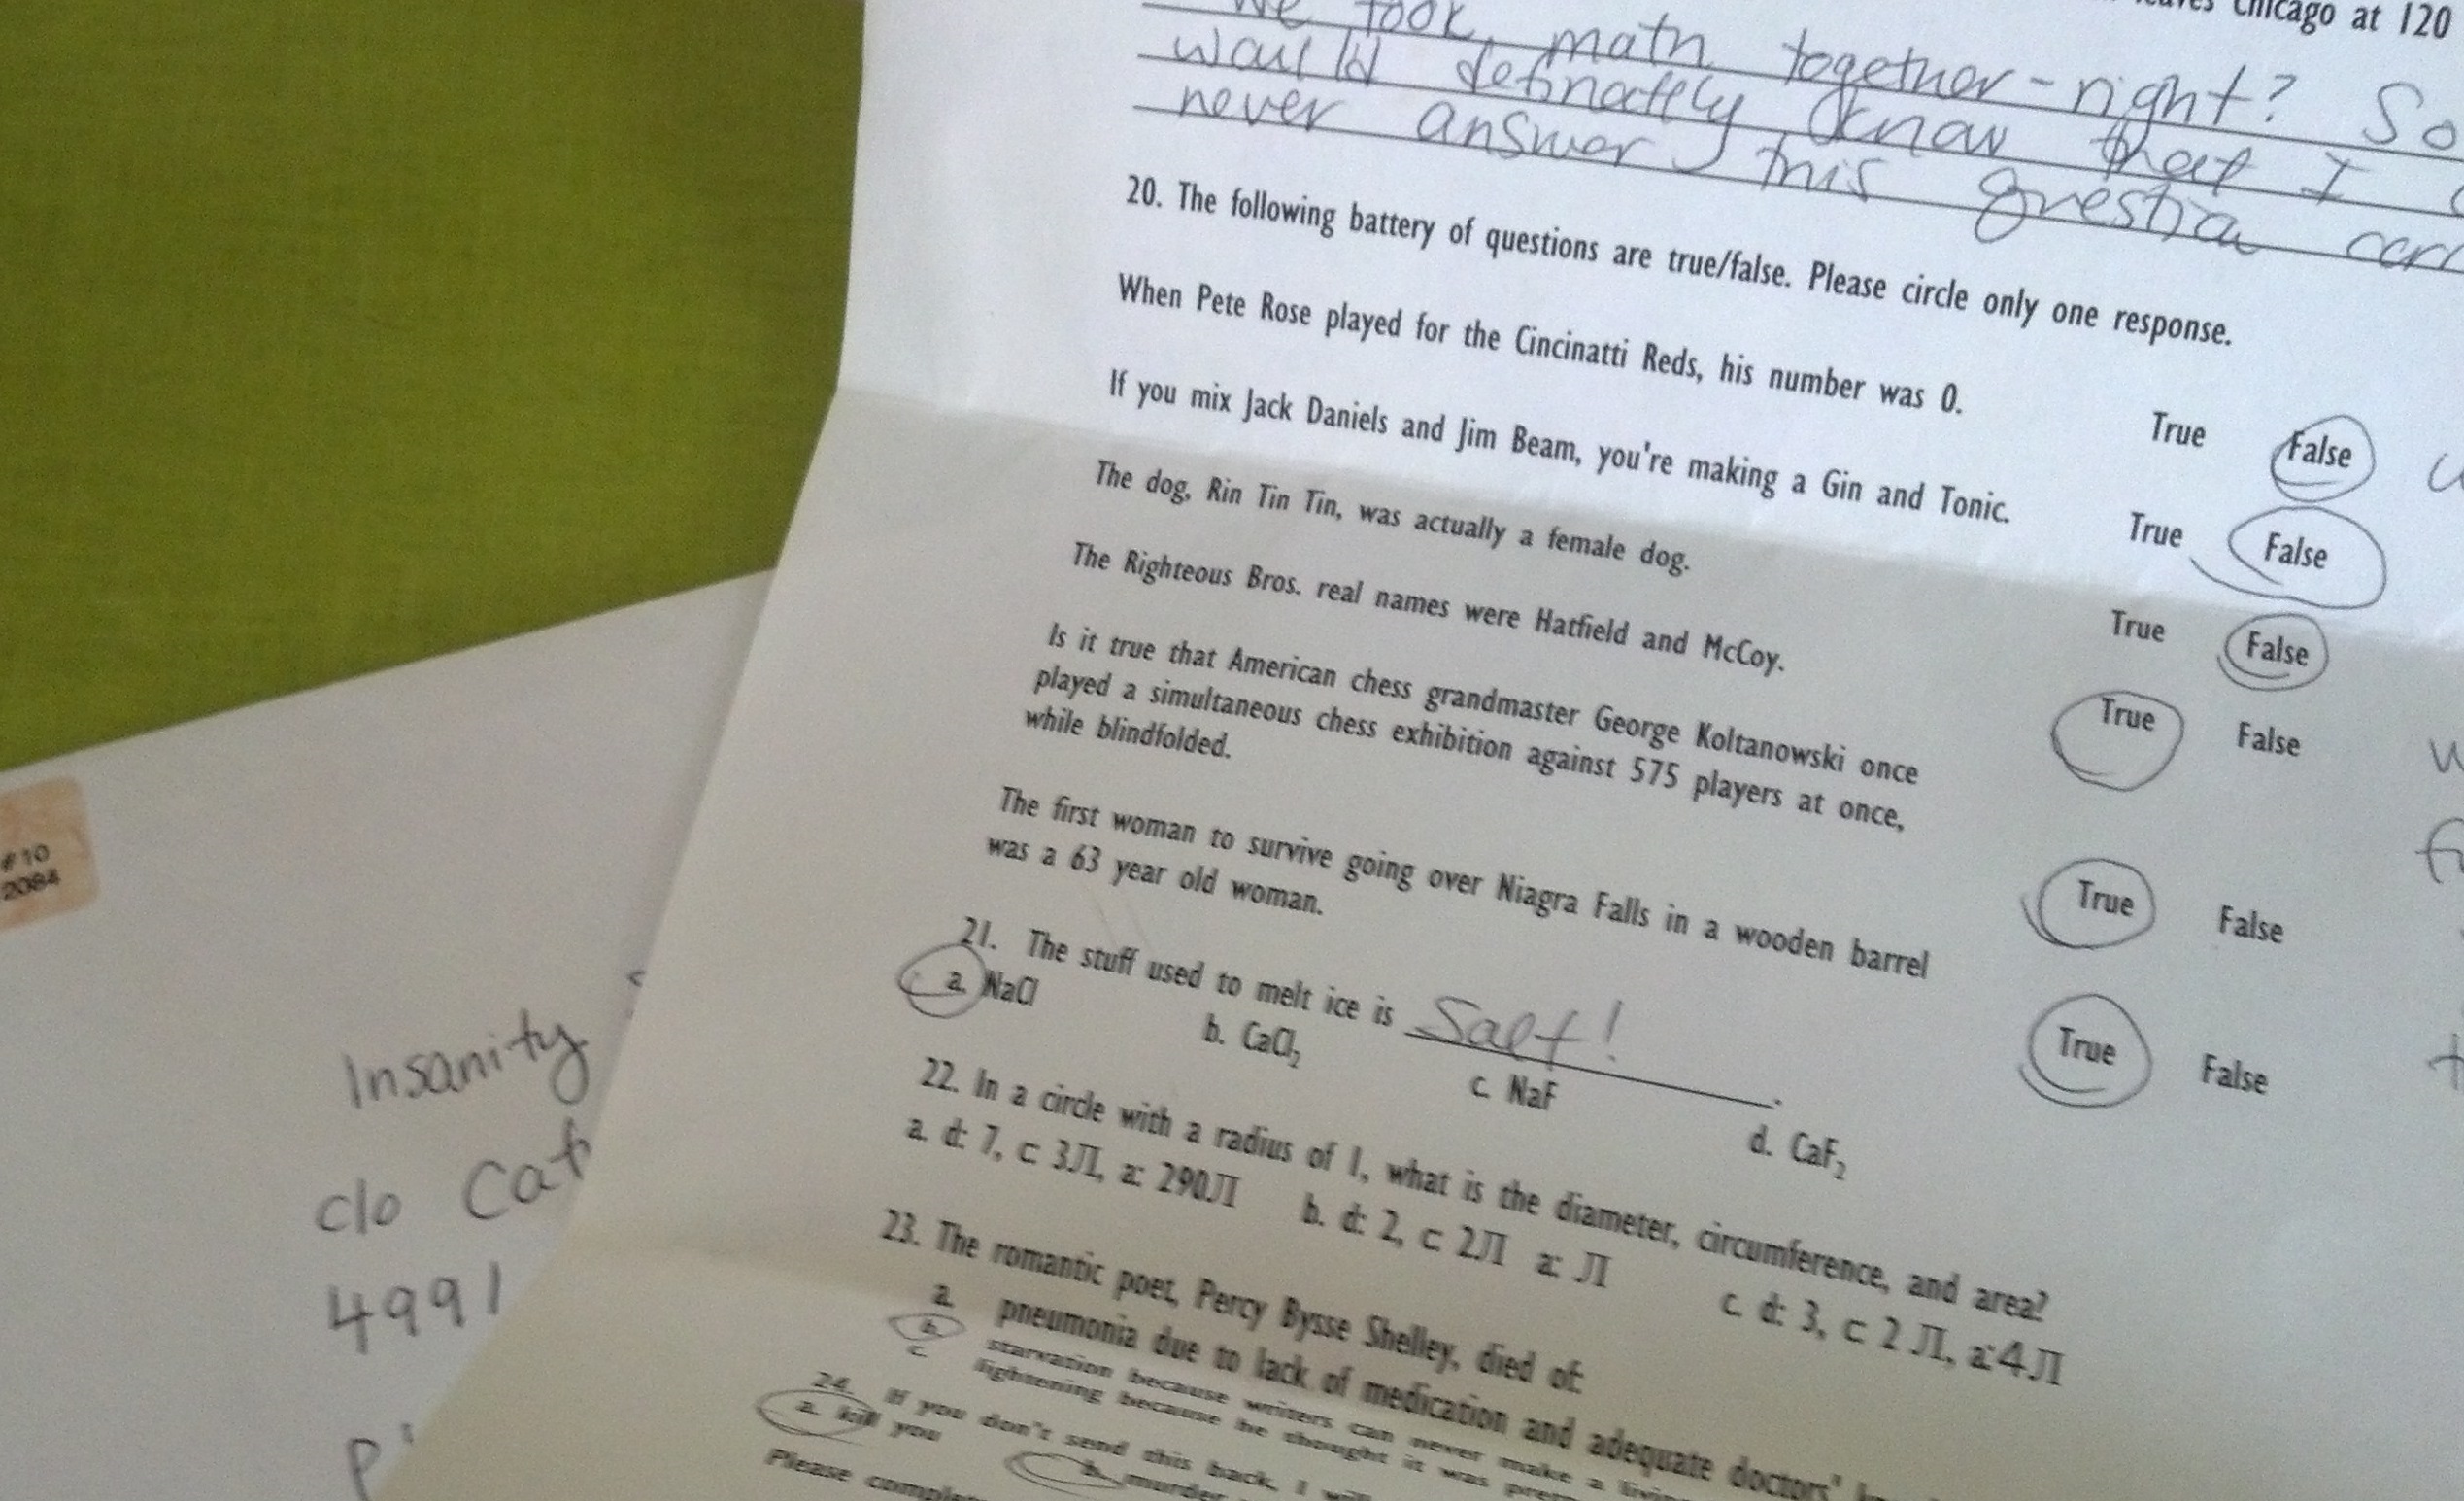 leaves Chicago at 120
We took math together - right? So
would definately know that I
never answer this question
20. The following battery of questions are true/false. Please circle only one response.
When Pete Rose played for the Cincinatti Reds, his number was 0.
True False
If you mix Jack Daniels and Jim Beam, you're making a Gin and Tonic.
True False
The dog, Rin Tin Tin, was actually a female dog.
True False
The Righteous Bros. real names were Hatfield and McCoy.
True False
Is it true that American chess grandmaster George Koltanowski once
played a simultaneous chess exhibition against 575 players at once,
while blindfolded.
True False
The first woman to survive going over Niagra Falls in a wooden barrel
was a 63 year old woman.
True False
21. The stuff used to melt ice is Salt! .
a. NaCl b. CaCl₂ c. NaF d. CaF₂
22. In a circle with a radius of 1, what is the diameter, circumference, and area?
a. d: 7, c: 3Л, a: 290Л b. d: 2, c: 2Л a: Л c. d: 3, c: 2 Л, a:4Л
23. The romantic poet, Percy Bysse Shelley, died of:
a. pneumonia due to lack of medication and adequate doctors'
b. starvation because writers can never make a
c. lightening because he thought it was
24. If you don't send this back, I will
a. kill you b. murder
Please
#10
2084
Insanity
c/o Cat
4991